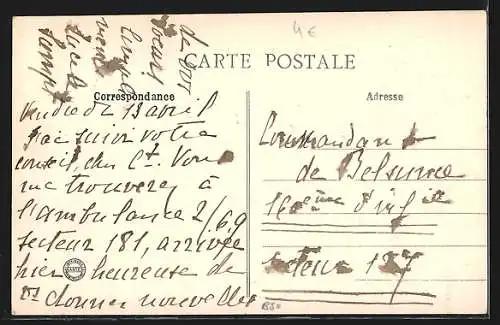 4€
CARTE POSTALE
Correspondance
Adresse
Vendredi 13 avril
J'ai suivi votre
conseil, cher Ct. Vous
me trouverez à
l'ambulance 2/69
secteur 181, arrivée
hier heureuse de
vs donner nouvelles
de vos
Commandant
de Belsunce
160ème d'Inf ie
secteur 127